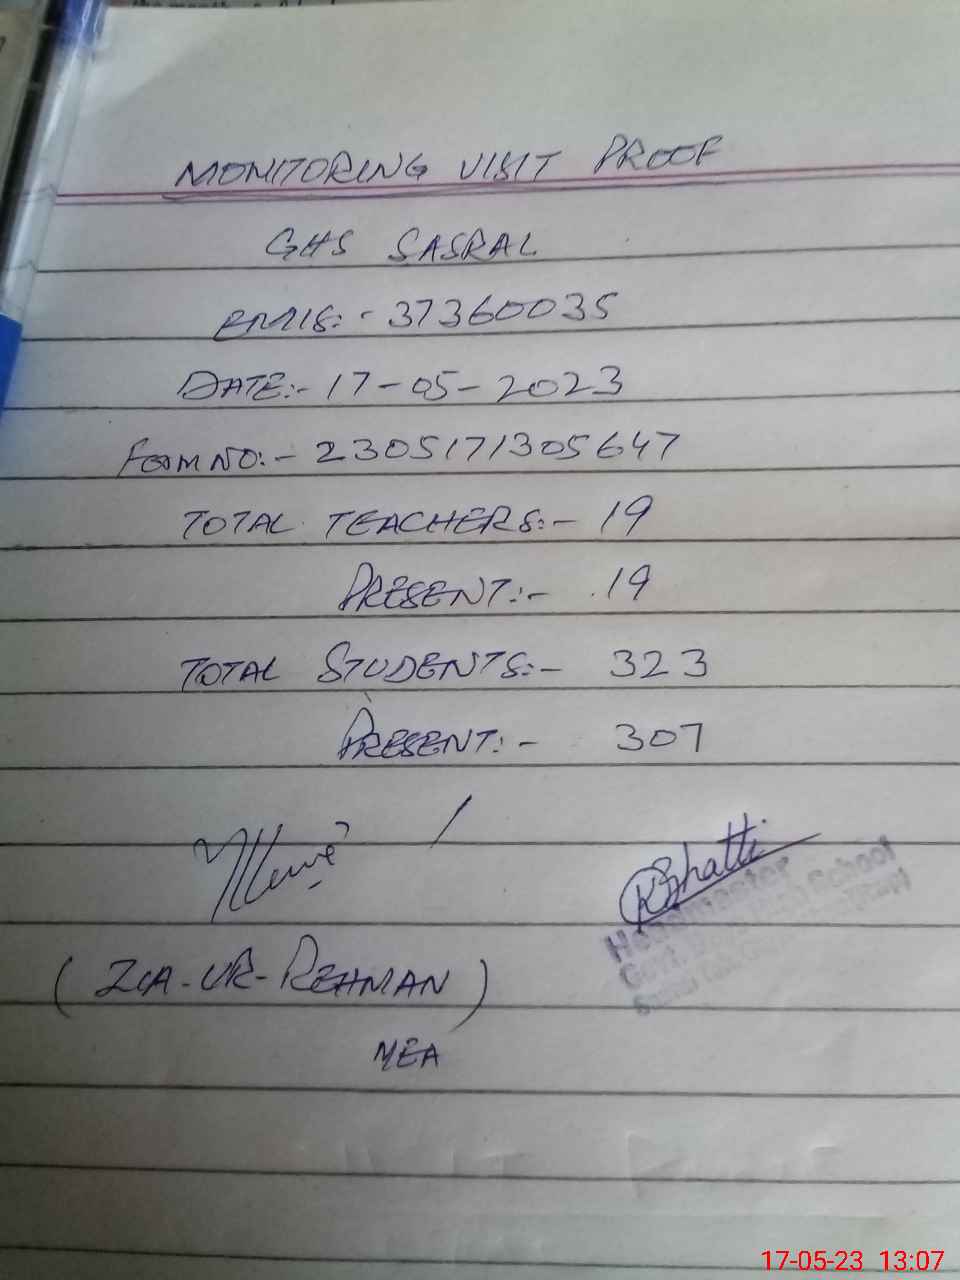 MONITORING VISIT PROOF
GHS SASRAL
EMIS:- 37360035
DATE:- 17-05-2023
FORM NO:- 2305171305647
TOTAL TEACHERS:- 19
PRESENT:- 19
TOTAL STUDENTS:- 323
PRESENT:- 307
Bhatti
Headmaster
Govt. Boys High School
(ZIA-UR-REHMAN)
MEA
17-05-23 13:07